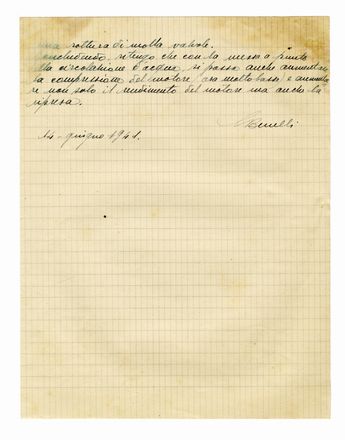 una rottura di molla valvole.
Concludendo, ritengo che con la messa a punto
alla circolazione d'acqua, si possa anche aumentare
la compressione del motore, ora molto bassa e aumenta
re non solo il rendimento del motore ma anche la
ripresa.
14 - giugno 1941.
Benelli